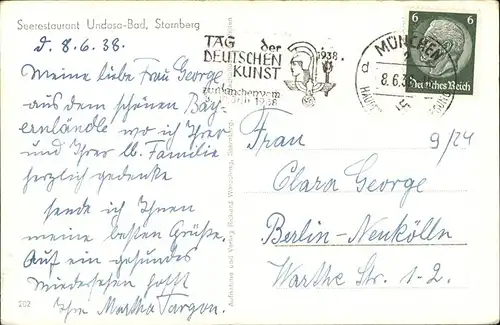 Seerestaurant Undosa-Bad, Starnberg
d. 8.6.38.
Meine liebe Frau George,
aus dem schönen Bay-
ernländle wo ich Ihrer
und Ihrer lb. Familie
herzlich gedenke
sende ich Ihnen
meine besten Grüße.
Auf ein gesundes
Wiedersehen hofft
Ihre Martha Targon.
202
Aufnahme und Verlag Starnberg.
TAG der
DEUTSCHEN
KUNST
1938
MÜNCHEN
8.6.38
6 6
Deutsches Reich
9/24
Frau
Clara George
Berlin-Neukölln
Warthe Str. 1-2.